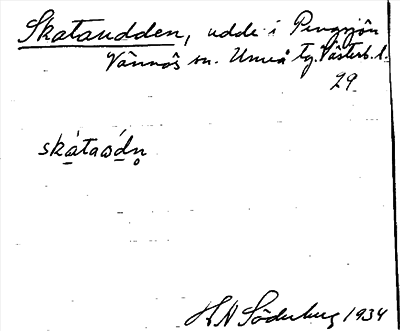 Skataudden, udde i Pengsjön
Vännäs sn. Umeå tg. Västerb. l.
29
skátaǝ́dn̥
H A Söderberg 1934